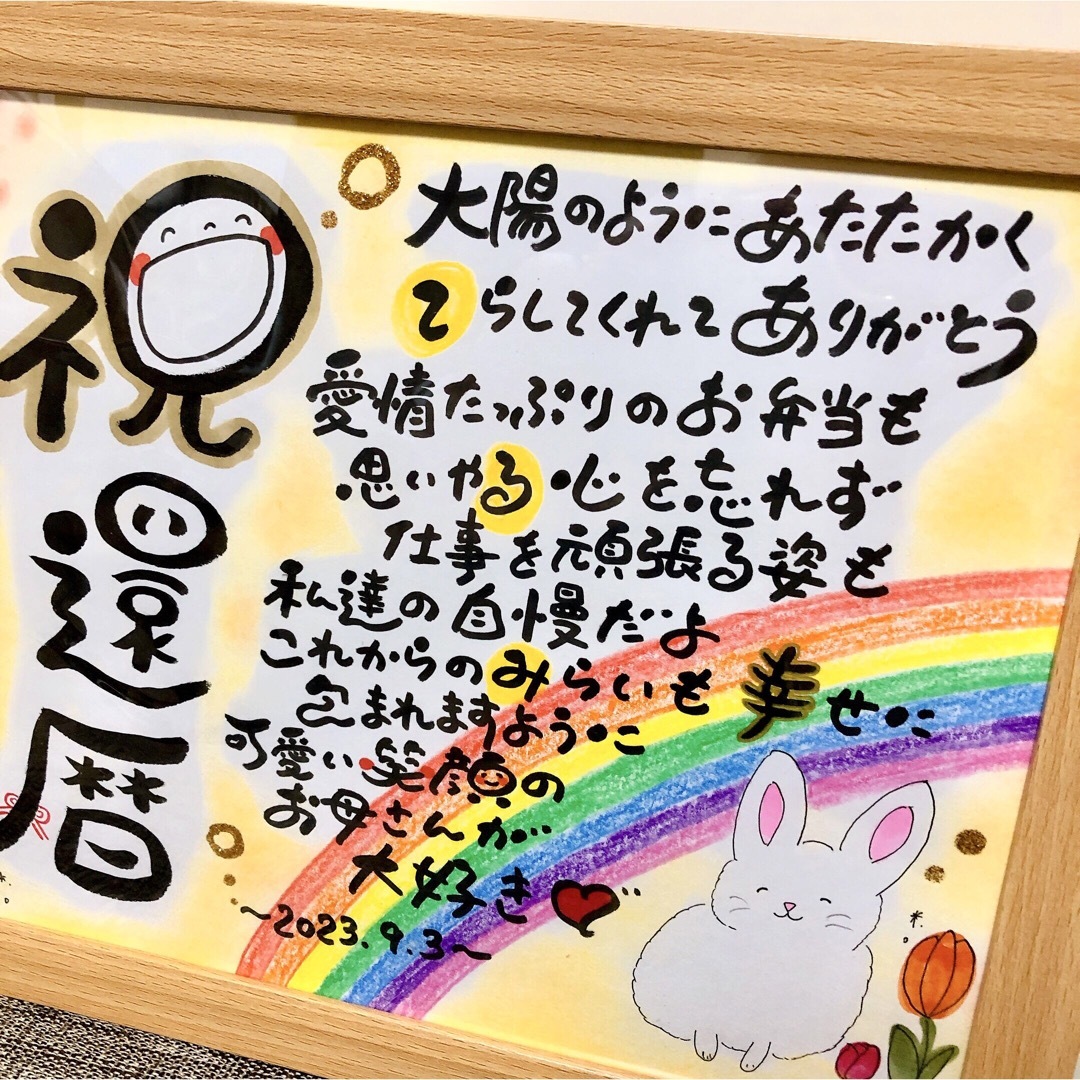 祝
還
暦
太陽のようにあたたかく
てらしてくれてありがとう
愛情たっぷりのお弁当も
思いやる心を忘れず
仕事を頑張る姿も
私達の自慢だよ
これからのみらいも幸せに
包まれますように
可愛い笑顔の
お母さんが
大好き
~2023.9.3~